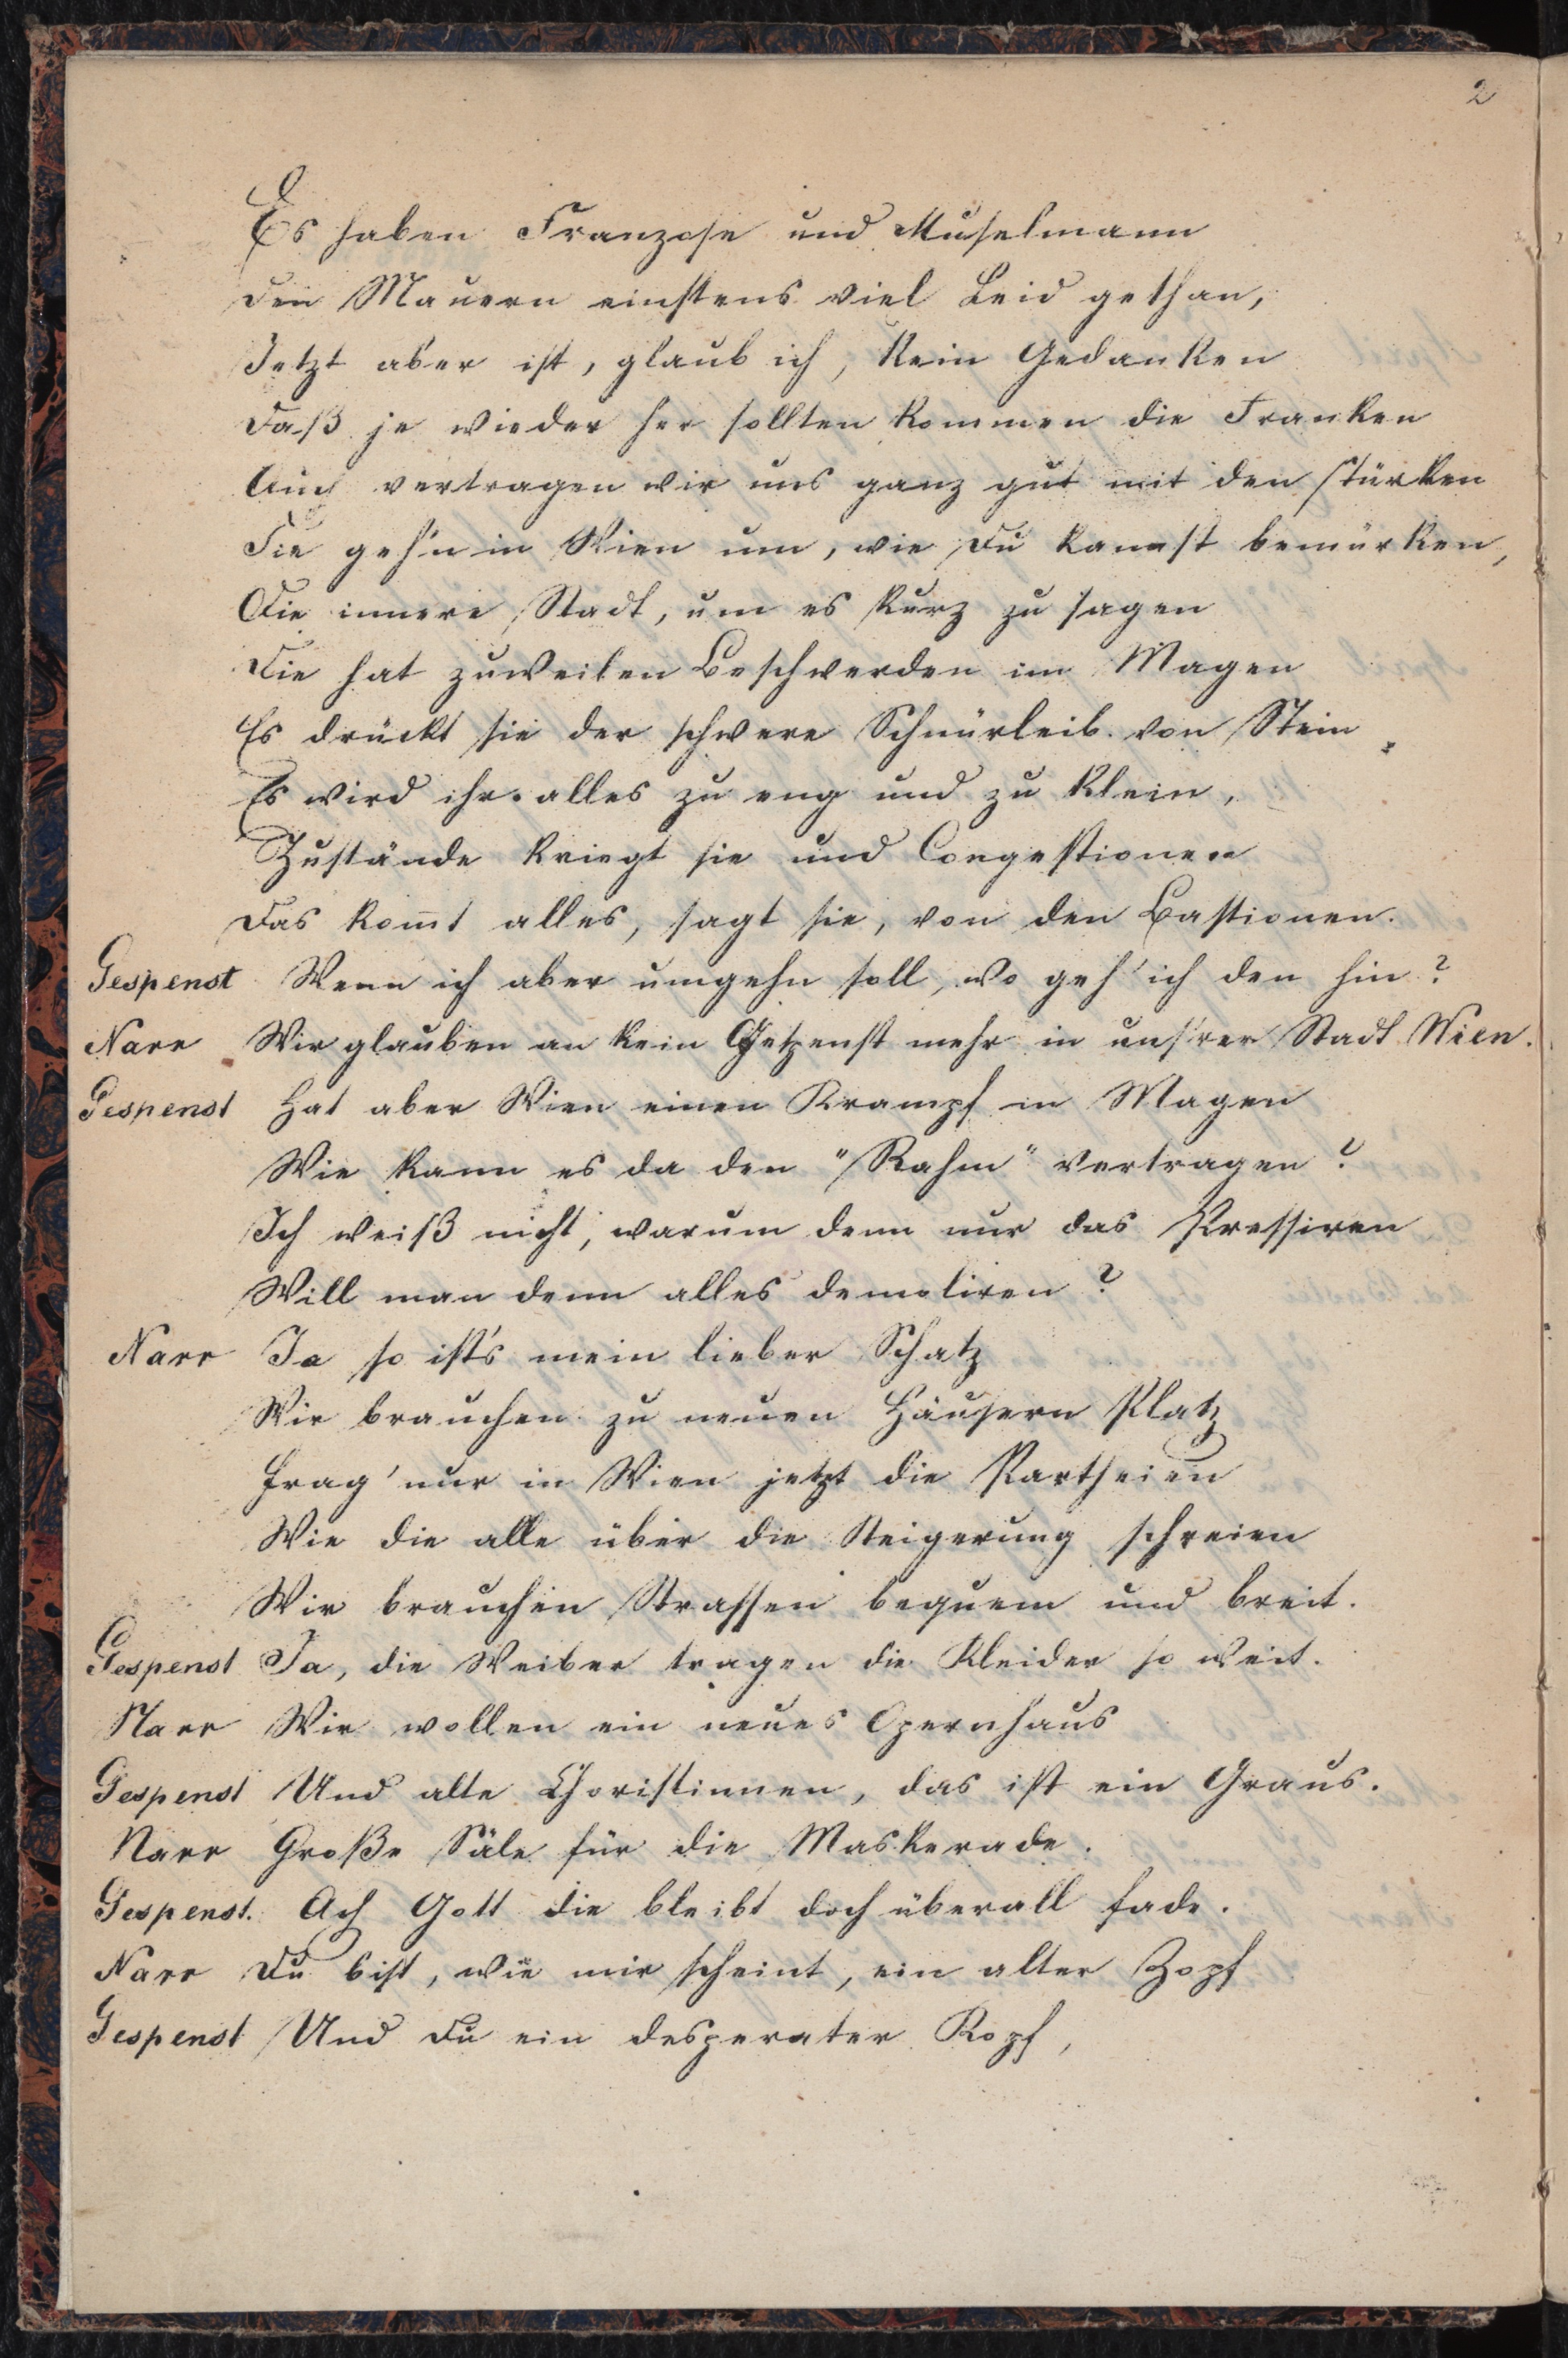 2
Es haben Franzose und Muselmann
den Mauern einstens viel Leid gethan,
Jetzt aber ist, glaub ich, kein Gedanken
Daß je wieder her sollten kommen die Franken
Auch vertragen wir uns ganz gut mit den Türken
Sie geh'n in Wien um, wie Du kannst bemürken,
Die innere Stadt, um es kurz zu sagen
Die hat zuweilen Beschwerden im Magen
Es drückt sie der schwere Schnürleib von Stein
Es wird ihr alles zu eng und zu klein,
Zustände kriegt sie und Congestionen
Das kom̄t alles, sagt sie, von den Bastionen.
Gespenst Wenn ich aber umgehn soll, wo geh' ich den hin?
Narr Wir glauben an kein Gespenst mehr in uns'rer Stadt Wien.
Gespenst Hat aber Wien einen Krampf im Magen
Wie kann es da den "Rahm" vertragen?
Ich weiß nicht, warum denn nur das Pressiren
Will man denn alles demoliren?
Narr Ja so ist's mein lieber Schatz
Wir brauchen zu neuen Häusern Platz
Frag' nur in Wien jetzt die Partheien
Wie die alle über die Steigerung schreien
Wir brauchen Strassen bequem und breit.
Gespenst Ja, die Weiber tragen die Kleider so weit.
Narr Wir wollen ein neues Opernhaus
Gespenst Und alte Choristinnen, das ist ein Graus.
Narr Große Säle für die Maskerade.
Gespenst. Ach Gott die bleibt doch überall fade.
Narr Du bist, wie mir scheint, ein alter Zopf
Gespenst Und Du ein desperater Kopf,